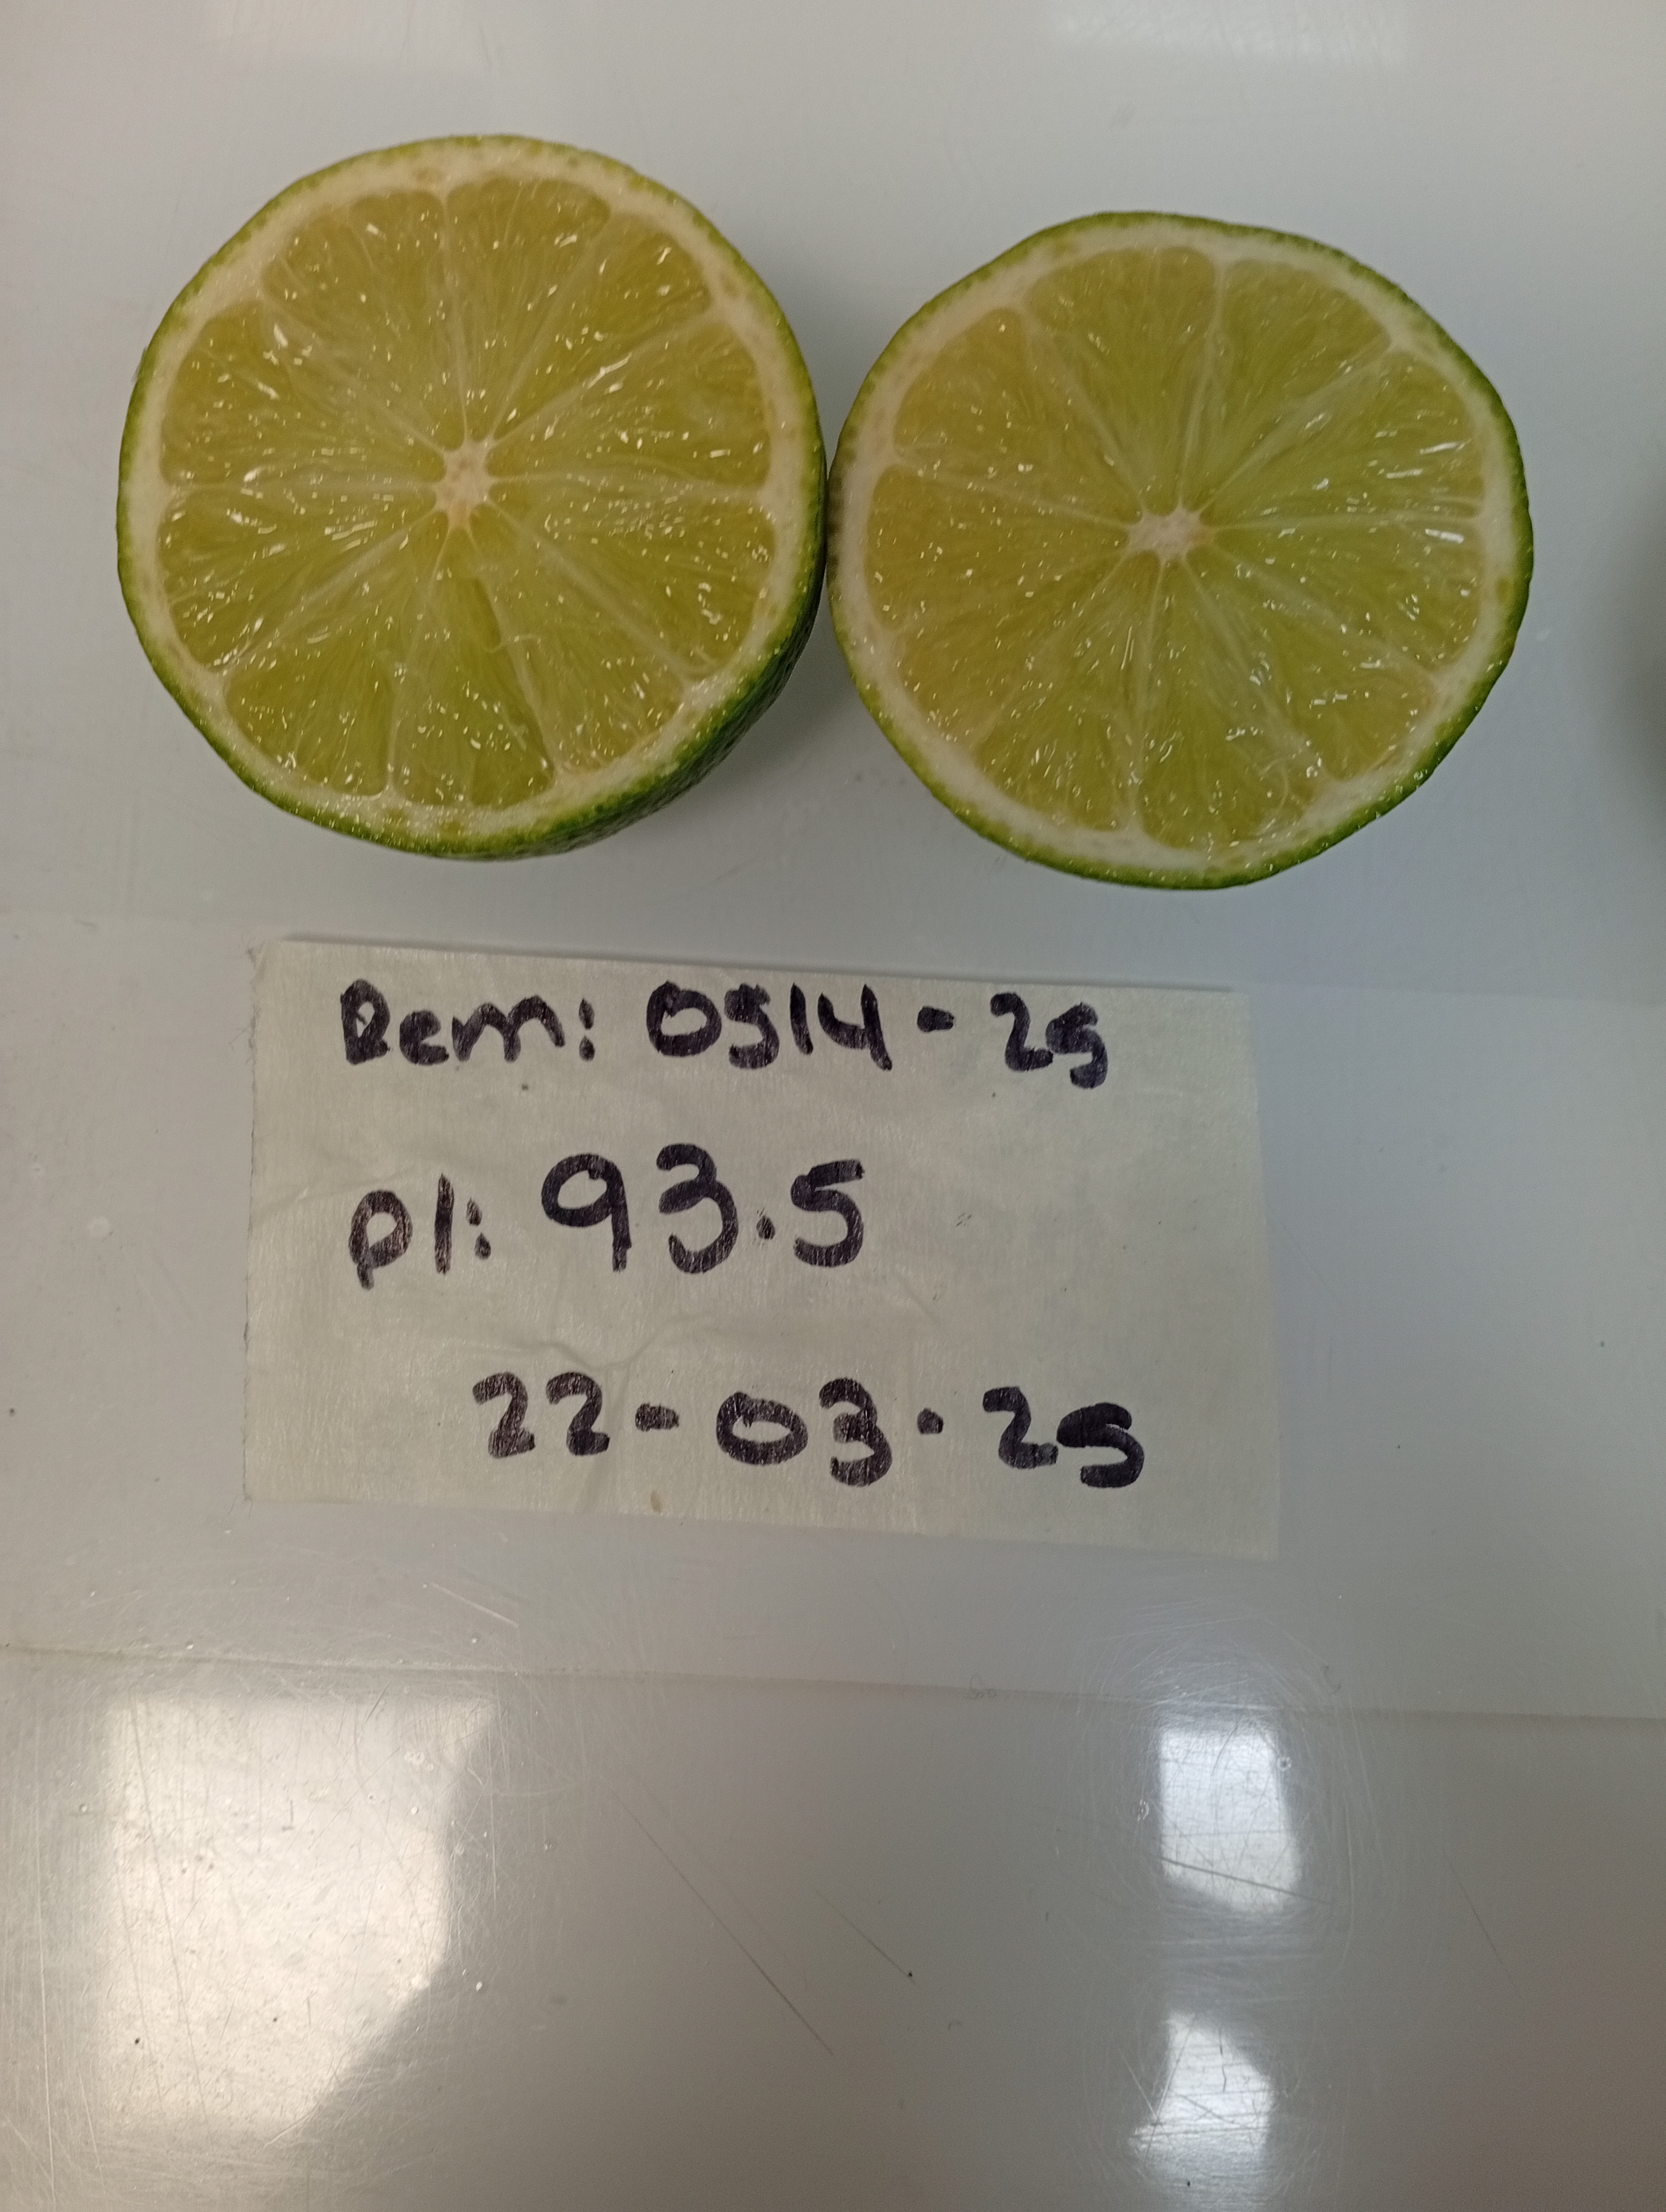 Rem: 0514-25
pl: 93.5
22-03-25